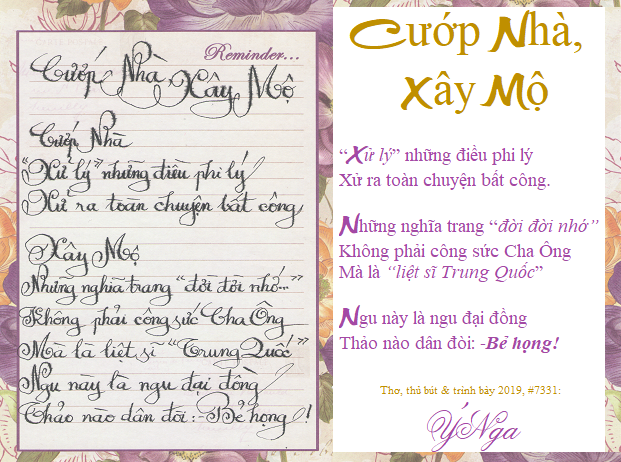 Reminder...
Cướp Nhà, Xây Mộ
Cướp Nhà
"Xử lý" những điều phi lý
Xử ra toàn chuyện bất công
Xây Mộ
Những nghĩa trang "đời đời nhớ..."
Không phải công sức Cha Ông
Mà là liệt sĩ "Trung Quốc"
Ngu này là ngu đại đồng
Thảo nào dân đòi: -Bẻ họng!
Cướp Nhà,
Xây Mộ
“Xử lý” những điều phi lý
Xử ra toàn chuyện bất công.
Những nghĩa trang “đời đời nhớ”
Không phải công sức Cha Ông
Mà là “liệt sĩ Trung Quốc”
Ngu này là ngu đại đồng
Thảo nào dân đòi: -Bẻ họng!
Thơ, thủ bút & trình bày 2019, #7331:
Ý Nga